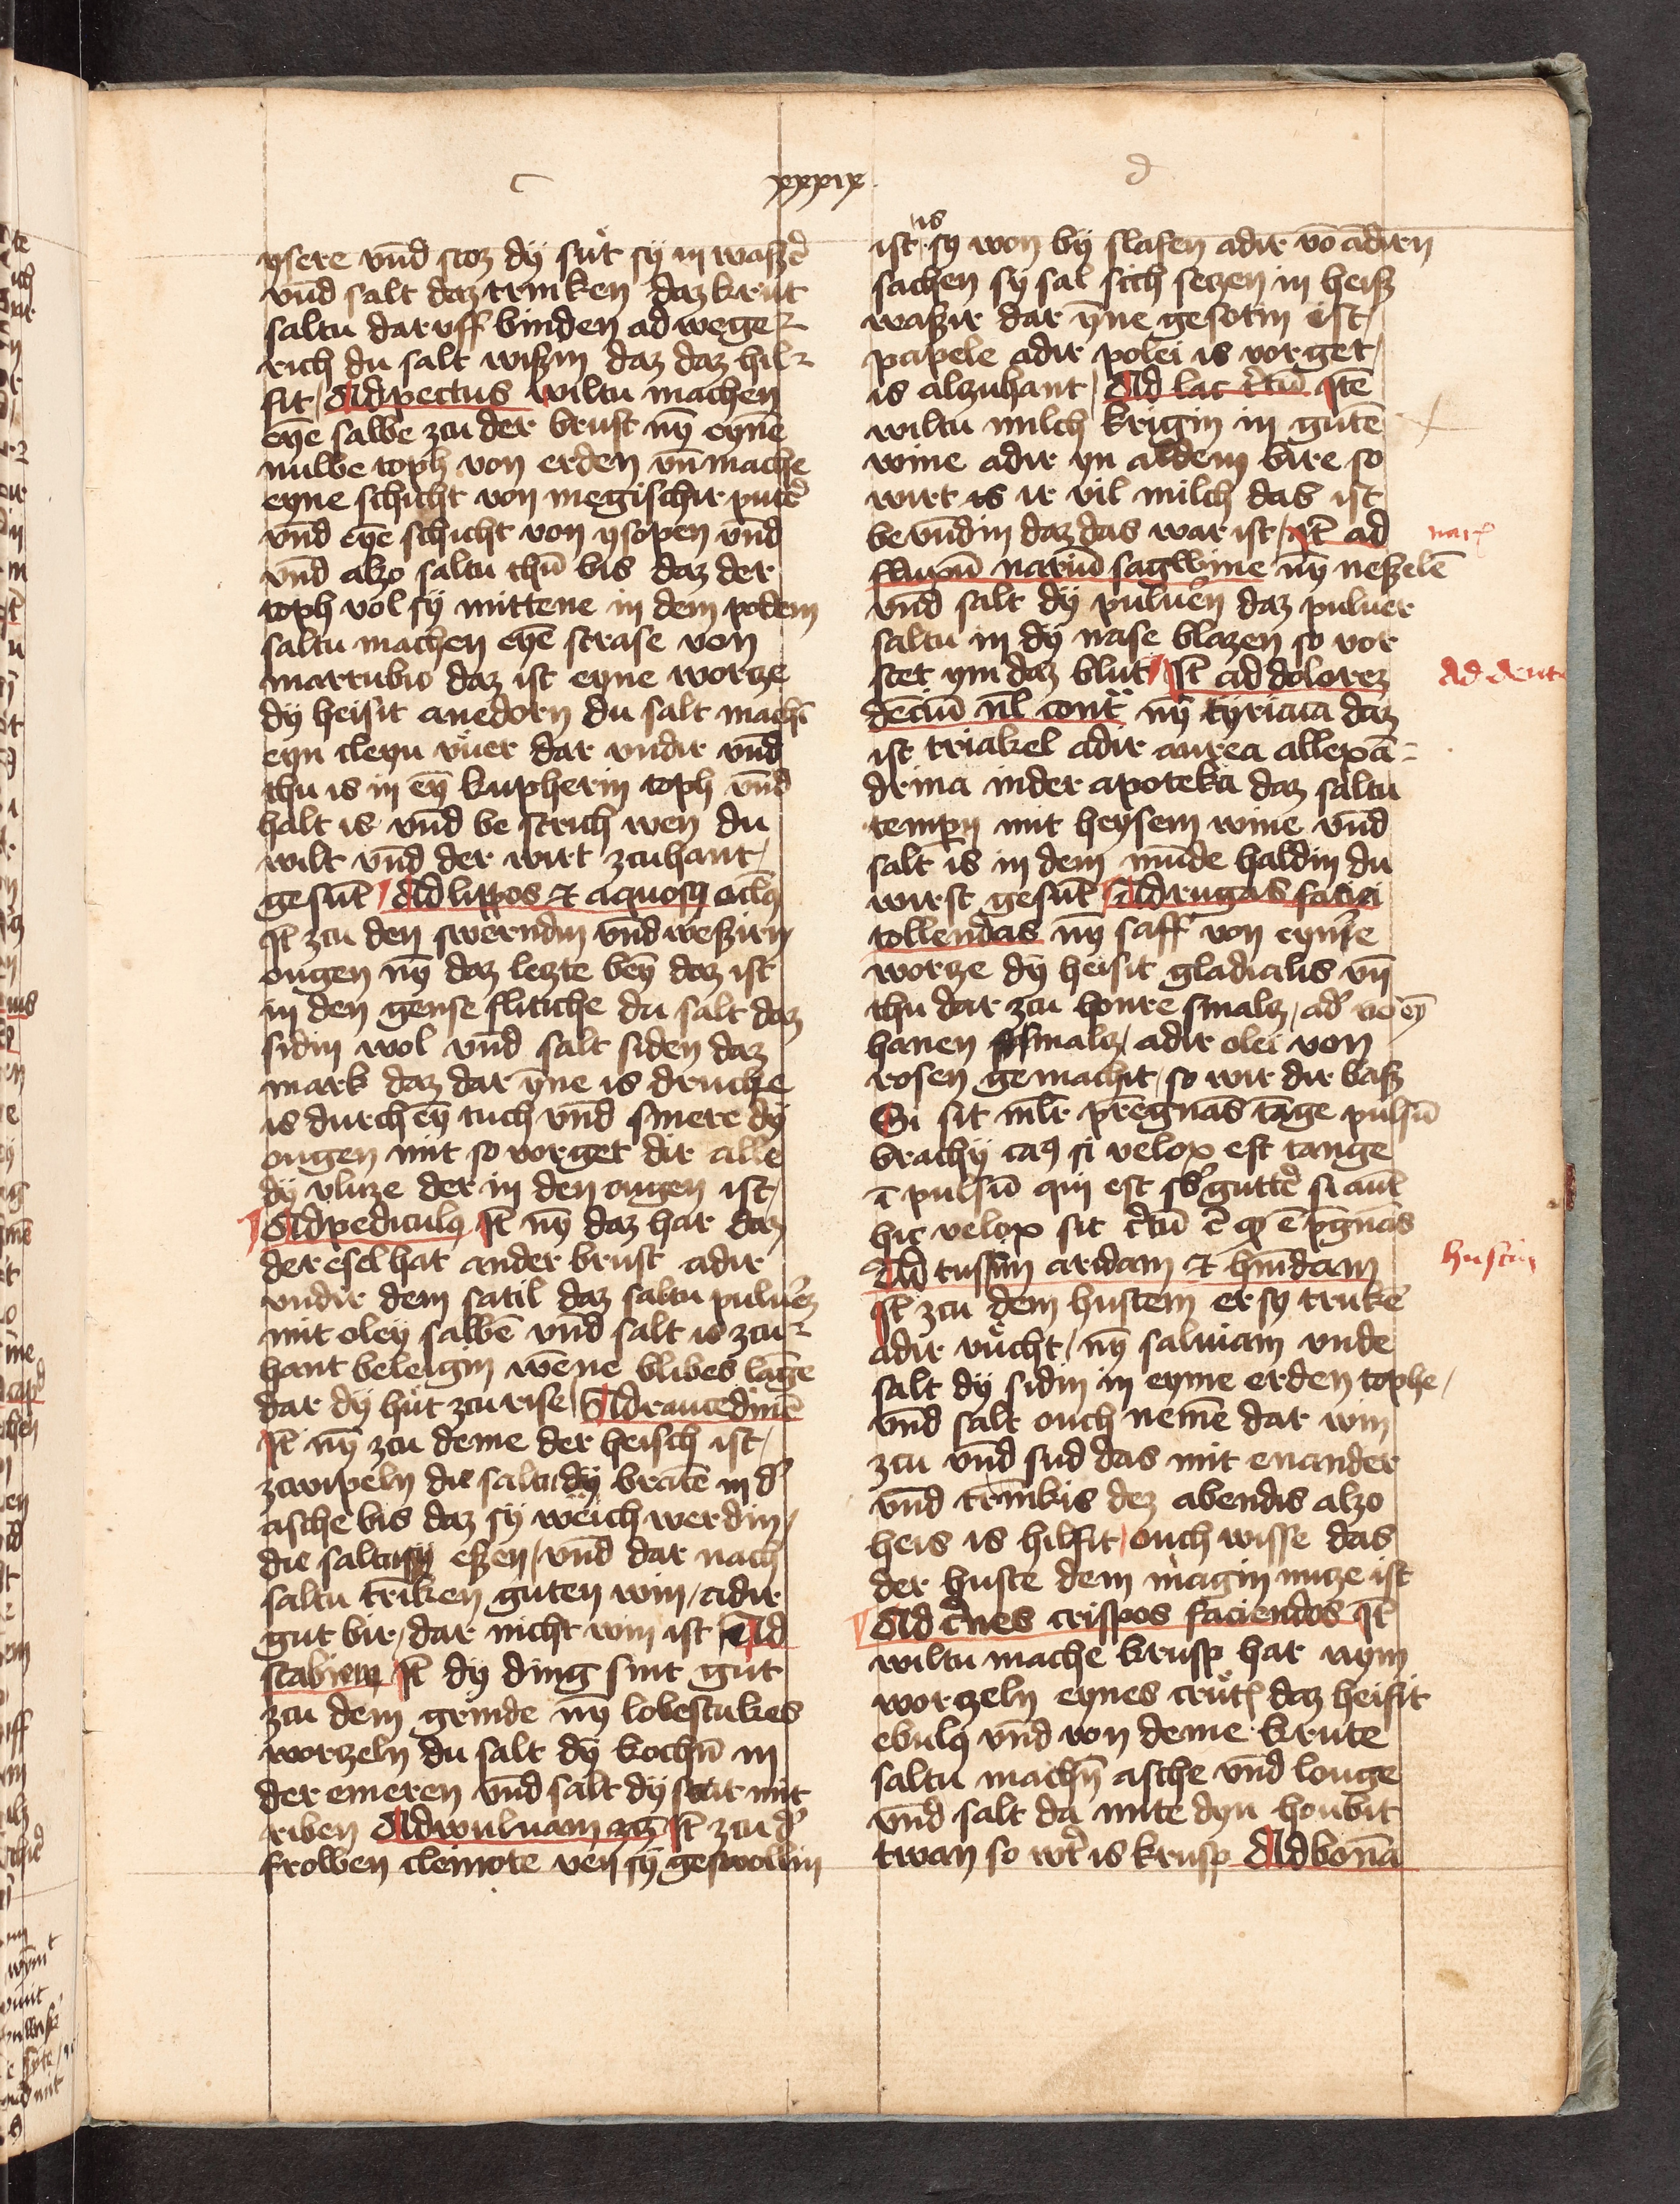 c
xxxix
d
ysere vnd saz dÿ sut sÿ in waßer
vnd salt daz trinken daz krut
saltu dar uff binden ad wege
rich du salt wißin daz daz hil
fit Ad pectus wiltu machen
eyne salbe zcu der brust nÿ eyne
nuwe toph von erden vn mache
eyne schicht von megischir puter
vnd eyne schicht von ysopen vnd
vnd alzo saltu thun bis daz der
toph vol sÿ mittene in dem podem
saltu machen eyne strase von
marrubio daz ist eyne worze
dÿ heisit anedorn du salt machen
eyn cleyn vuer dar undir vnd
thu is in eyn kupherin toph vnd
halt is vnd be strich wen du
wilt vnd der wirt zcuhant
gesunt Ad lippos et aquosos oculos
Item zcu den swerndin vnd weßirn
ougen nÿ daz lezte beyn daz ist
in den gense flitiche du salt daz
sidin wol vnd salt siden daz
mark daz dar ÿne is druche
is durch eyn tuch vnd smere dÿ
ougen mit so vorget dir alle
dÿ vluze der in den ougen ist
Ad pediculos Item nÿ daz har daz
der esel hat an der brust adir
vndir dem satil daz saltu pulvern
mit oleÿ salben vnd salt is zcu
hant beleigin wene blibes lange
dar dÿ hut zcu rise Ad raucedinem
Item nÿ zcu deme der heisch ist
zcwipeln die saltu dÿ braten in der
asche bis daz sÿ weich werdin
die saltu sÿ eßen vnd dar nach
saltu trinken guten win adir
gut bir dar nicht win ist Ad
scabiem Item dÿ ding sint gut
zcu dem grinde nÿ lobestukes
worzeln du salt dÿ kochen in
der emeren vnd salt dÿ stat mit
riben Ad wuluam Item zcu der
frowen cleinote ven sÿ geswollin
is
ist sÿ won bÿ slafen adir von andirn
sachen sÿ sal sich sezen in heiß
waßir dar ÿne gesotin ist
papele adir polei is vorget
is alzuhant Ad lac Item
wiltu milch krigin in guten
wine adir yn aldem bire so
wirt is ir vil milch das ist
bevundin daz das war ist Item ad
fluxum narium sagwine nÿ neßelen
vnd salt dÿ puluern daz puluer
saltu in dÿ nase blazen so vor
stet ym daz blut Item ad dolorez
dencium nÿ tyriaca daz
ist triakel adir aurea allexan
drina in der apoteka daz saltu
tempern mit heysem wine vnd
salt is in dem munde haldin du
wirst gesunt Ad rugas faciei
tollendas nÿ saff von eynre
worze dÿ heisit gladialis vn
thu dar zcu honre smalz ader von eyn
hanen smalz adir olei von
rosen gemachit so wir dir baß
Si sit mulier pregnans tange pulsum
brachy si velox est tange
pulsum qui est sub gutture si autem
hic velox sit certum est quod est pregnans
Ad tussim aridam et humidam
Item zcu dem hustem er sy truken
adir vucht nÿ saluiam vnde
salt dÿ sidin in eyme erden tophe
vnd salt ouch nemen dar win
zcu vnd sud das mit enander
vnd trinkis dez abendis alzo
heis is hilfit ouch wisse das
der huste dem magin nuze ist
Ad crines crispos faciendos Item
wiltu mache krusp har nym
worzeln eynes crutes daz heisit
ebulus vnd von deme krute
saltu machen asche vnd louge
vnd salt da mite dyn houbit
twan so wirt is krusp Ad bonam
Ad dente
husten